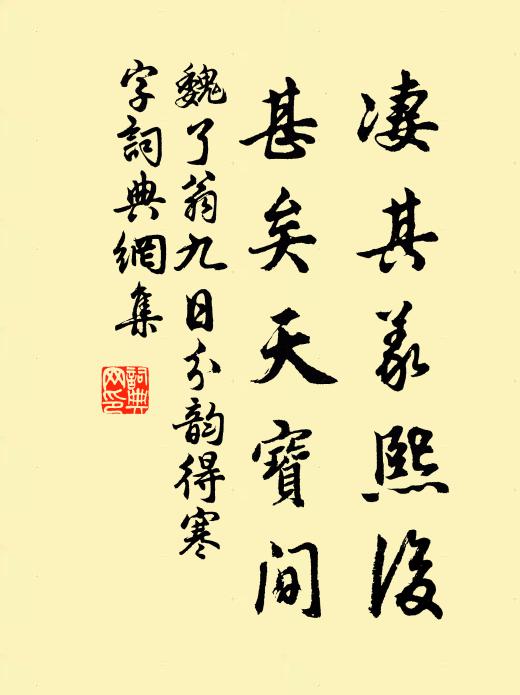 凄其義熙後
甚矣天寶间
魏了翁九日分韵得寒
字詞典網集
詞典
网印